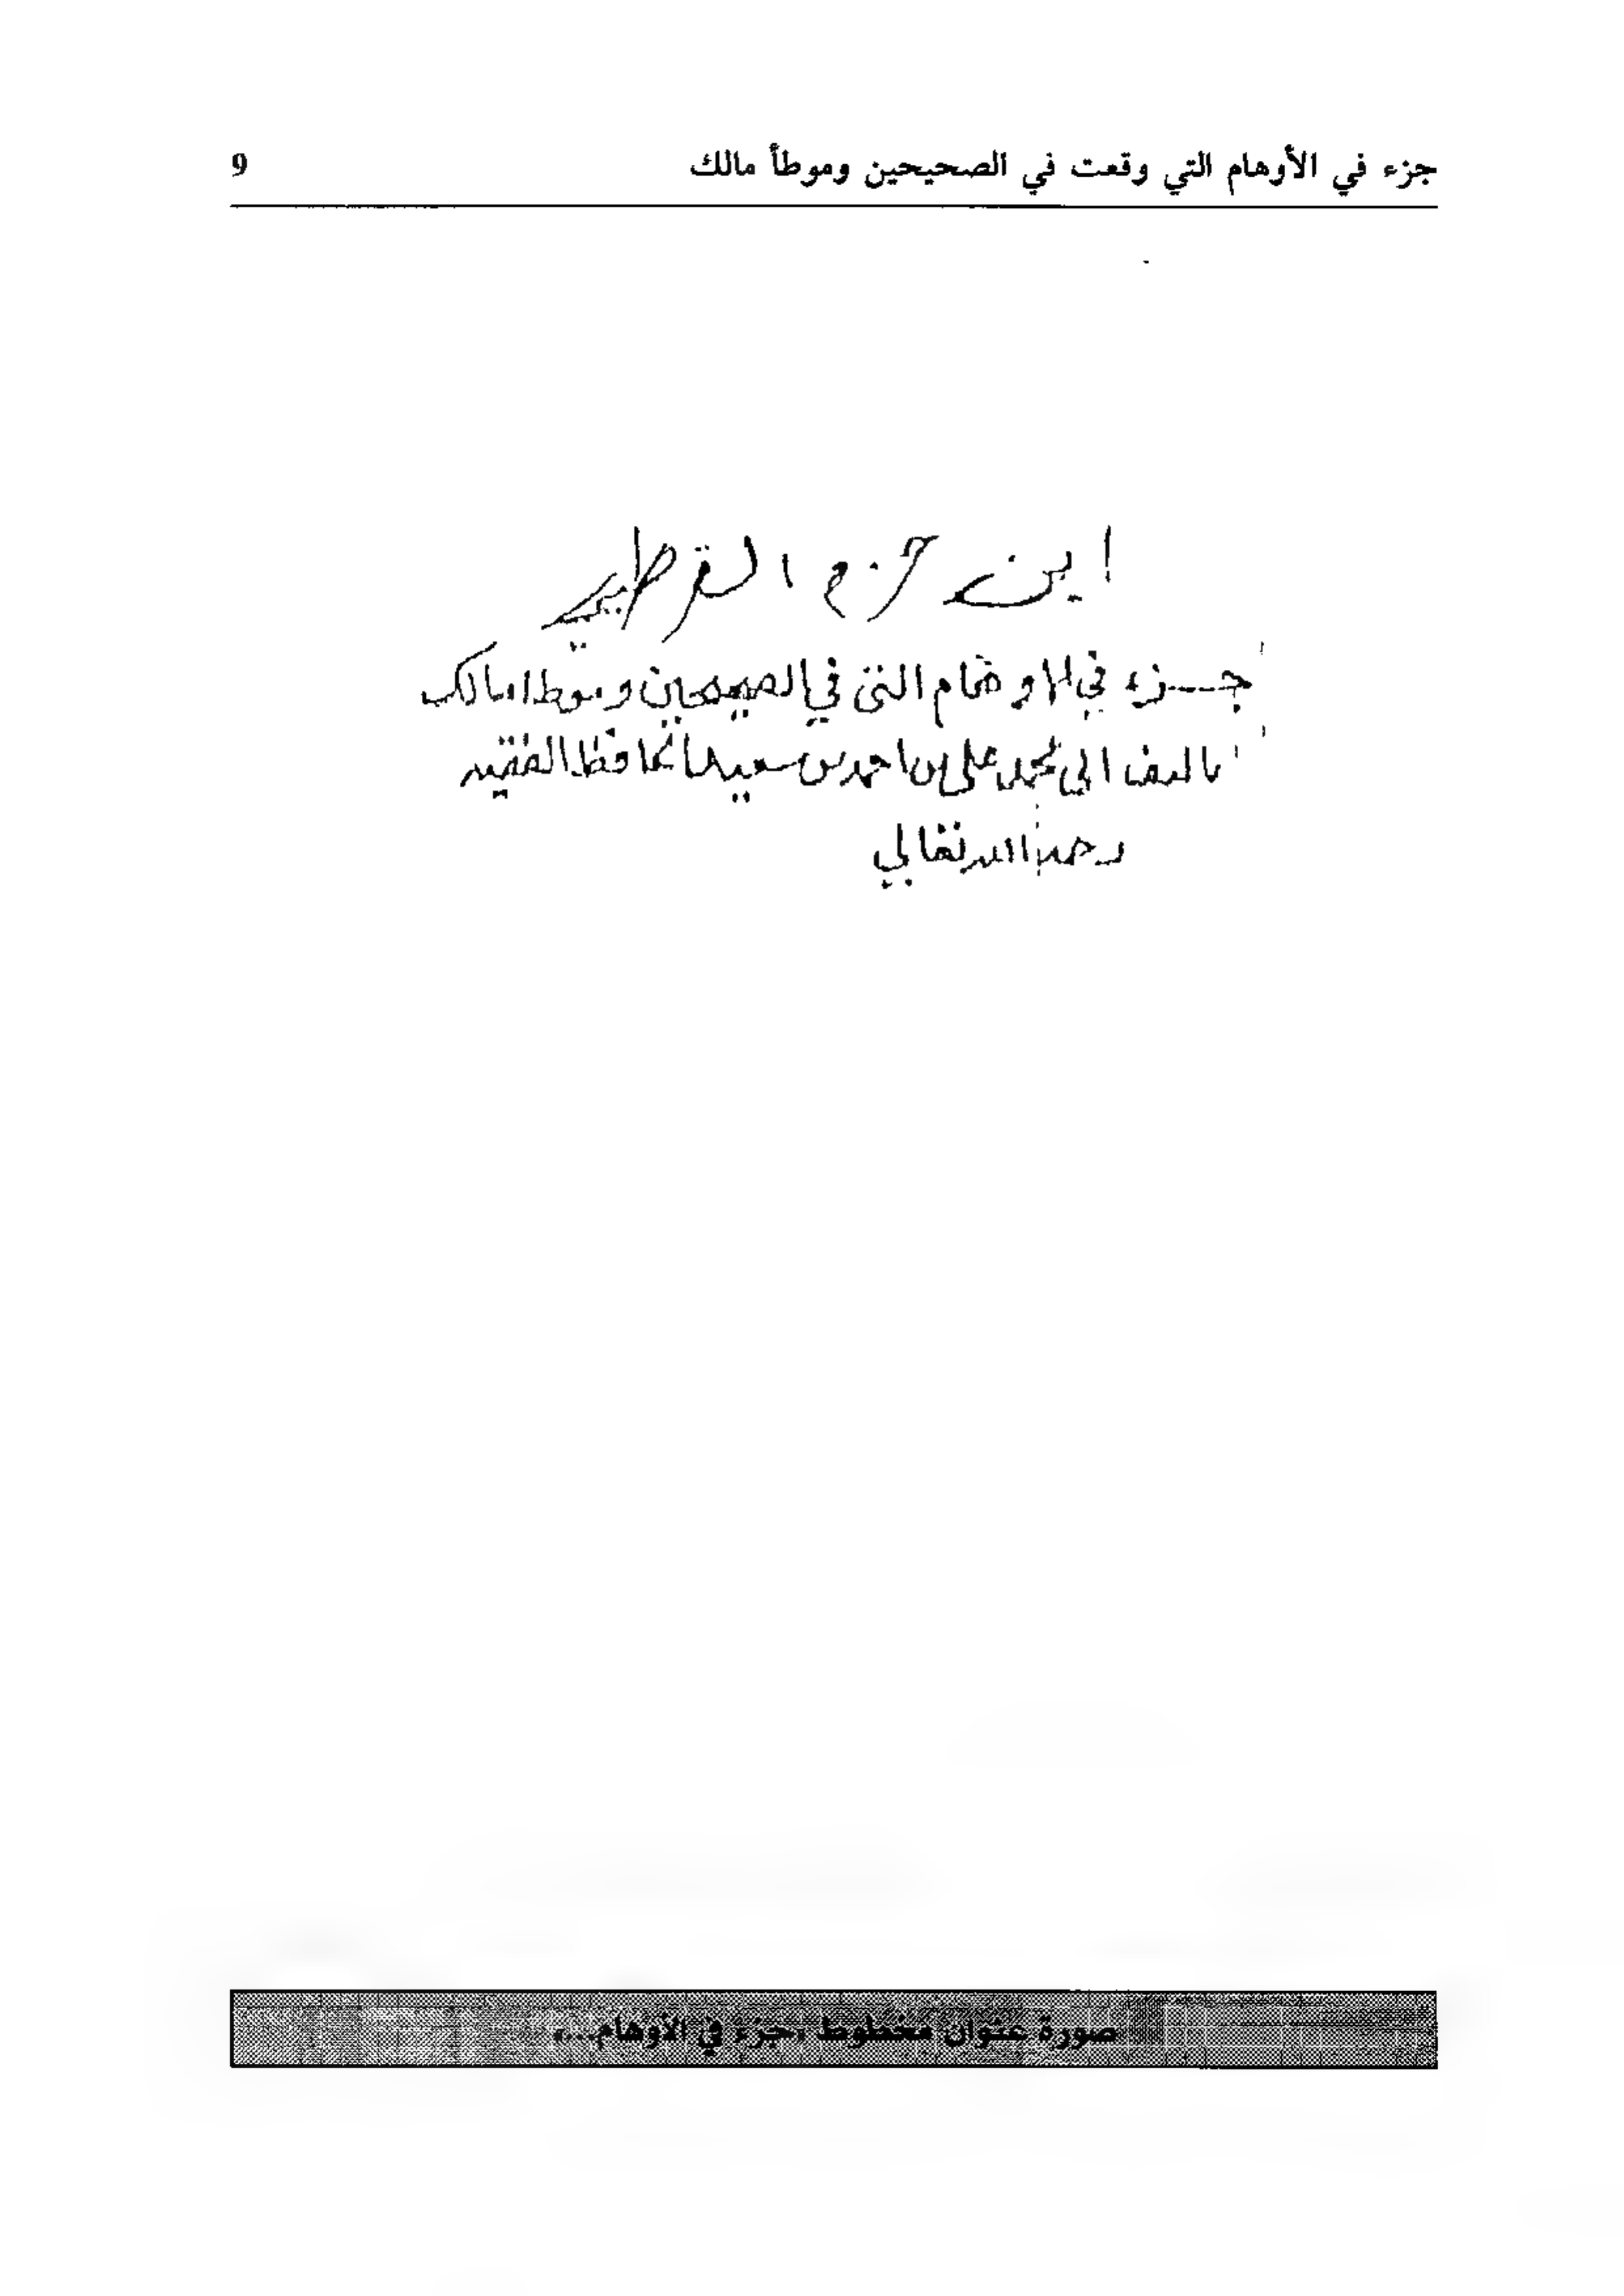 جزء في الأوهام التي وقعت في الصحيحين وموطأ مالك 9
ابن حزم القرطبي
جزء في الاوهام التي في الصحيحين وموطا مالك
تاليف ابي محمد علي بن احمد بن سعيد الحافظ الفقيه
رحمه الله تعالي
صورة عنوان مخطوط «جزء في الأوهام...»